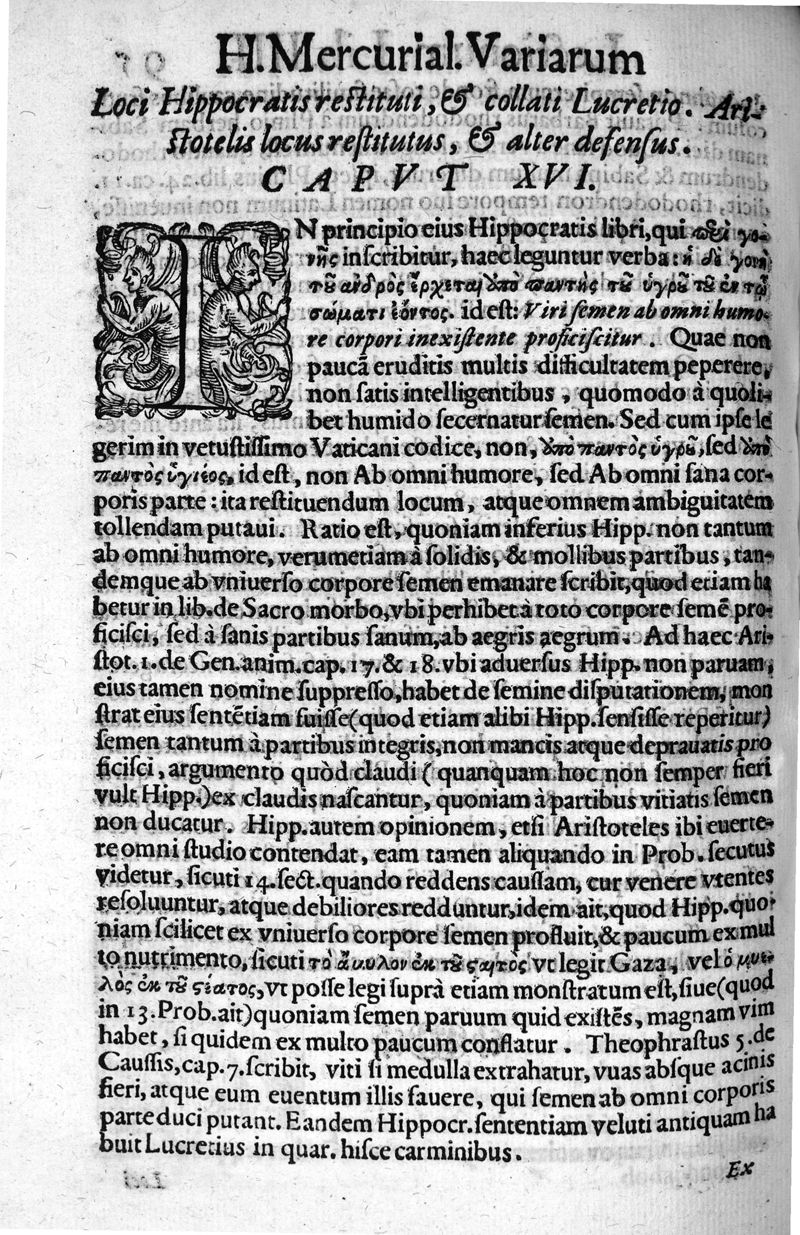 H. Mercurial. Variarum
Loci Hippocratis reſtituti, & collati Lucretio. Ari-
ſtotelis locus reſtitutus, & alter defenſus.
CAPVT XVI.
IN principio eius Hippocratis libri, qui περὶ γο-
νῆς inſcribitur, haec leguntur verba: ἡ δὲ γονὴ
τοῦ ἀνδρὸς ἔρχεται ὑπὸ παντὸς τοῦ ὑγροῦ τοῦ ἐν τῷ
σώματι ἐόντος. id eſt: Viri ſemen ab omni humo-
re corpori inexiſtente proficiſcitur. Quae non
paucā eruditis multis difficultatem peperere,
non ſatis intelligentibus, quomodo à quoli-
bet humido ſecernatur ſemen. Sed cum ipſe le
gerim in vetuſtiſſimo Vaticani codice, non, ὑπὸ παντὸς ὑγροῦ, ſed ὑπὸ
παντὸς ὑγιέος, id eſt, non Ab omni humore, ſed Ab omni ſana cor-
poris parte: ita reſtituendum locum, atque omnem ambiguitatem
tollendam putaui. Ratio eſt, quoniam inferius Hipp. non tantum
ab omni humore, verumetiam à ſolidis, & mollibus partibus, tan-
demque ab vniuerſo corpore ſemen emanare ſcribit, quod etiam ha
betur in lib. de Sacro morbo, vbi perhibet à toto corpore ſemē pro-
ficiſci, ſed à ſanis partibus ſanum, ab aegris aegrum. Ad haec Ari-
ſtot. 1. de Gen. anim. cap. 17. & 18. vbi aduerſus Hipp. non paruam,
eius tamen nomine ſuppreſſo, habet de ſemine diſputationem, mon
ſtrat eius ſentētiam fuiſſe (quod etiam alibi Hipp. ſenſiſſe reperitur)
ſemen tantum à partibus integris, non mancis atque deprauatis pro
ficiſci, argumento quòd claudi ( quanquam hoc non ſemper fieri
vult Hipp.) ex claudis naſcantur, quoniam à partibus vitiatis ſemen
non ducatur. Hipp. autem opinionem, etſi Ariſtoteles ibi euerte-
re omni ſtudio contendat, eam tamen aliquando in Prob. ſecutus
videtur, ſicuti 14. ſect. quando reddens cauſſam, cur venere vtentes
reſoluuntur, atque debiliores redduntur, idem ait, quod Hipp. quo-
niam ſcilicet ex vniuerſo corpore ſemen profluit, & paucum ex mul
to nutrimento, ſicuti τὸ ἄμυλον ἐκ τοῦ ςαιτὸς vt legit Gaza, vel ὁ μυε-
λὸς ἐκ τοῦ ςέατος, vt poſſe legi ſuprà etiam monſtratum eſt, ſiue (quod
in 13. Prob. ait) quoniam ſemen paruum quid exiſtēs, magnam vim
habet, ſi quidem ex multo paucum conflatur. Theophraſtus 5. de
Cauſſis, cap. 7. ſcribit, viti ſi medulla extrahatur, vuas abſque acinis
fieri, atque eum euentum illis fauere, qui ſemen ab omni corporis
parte duci putant. Eandem Hippocr. ſententiam veluti antiquam ha
buit Lucretius in quar. hiſce carminibus.
Ex